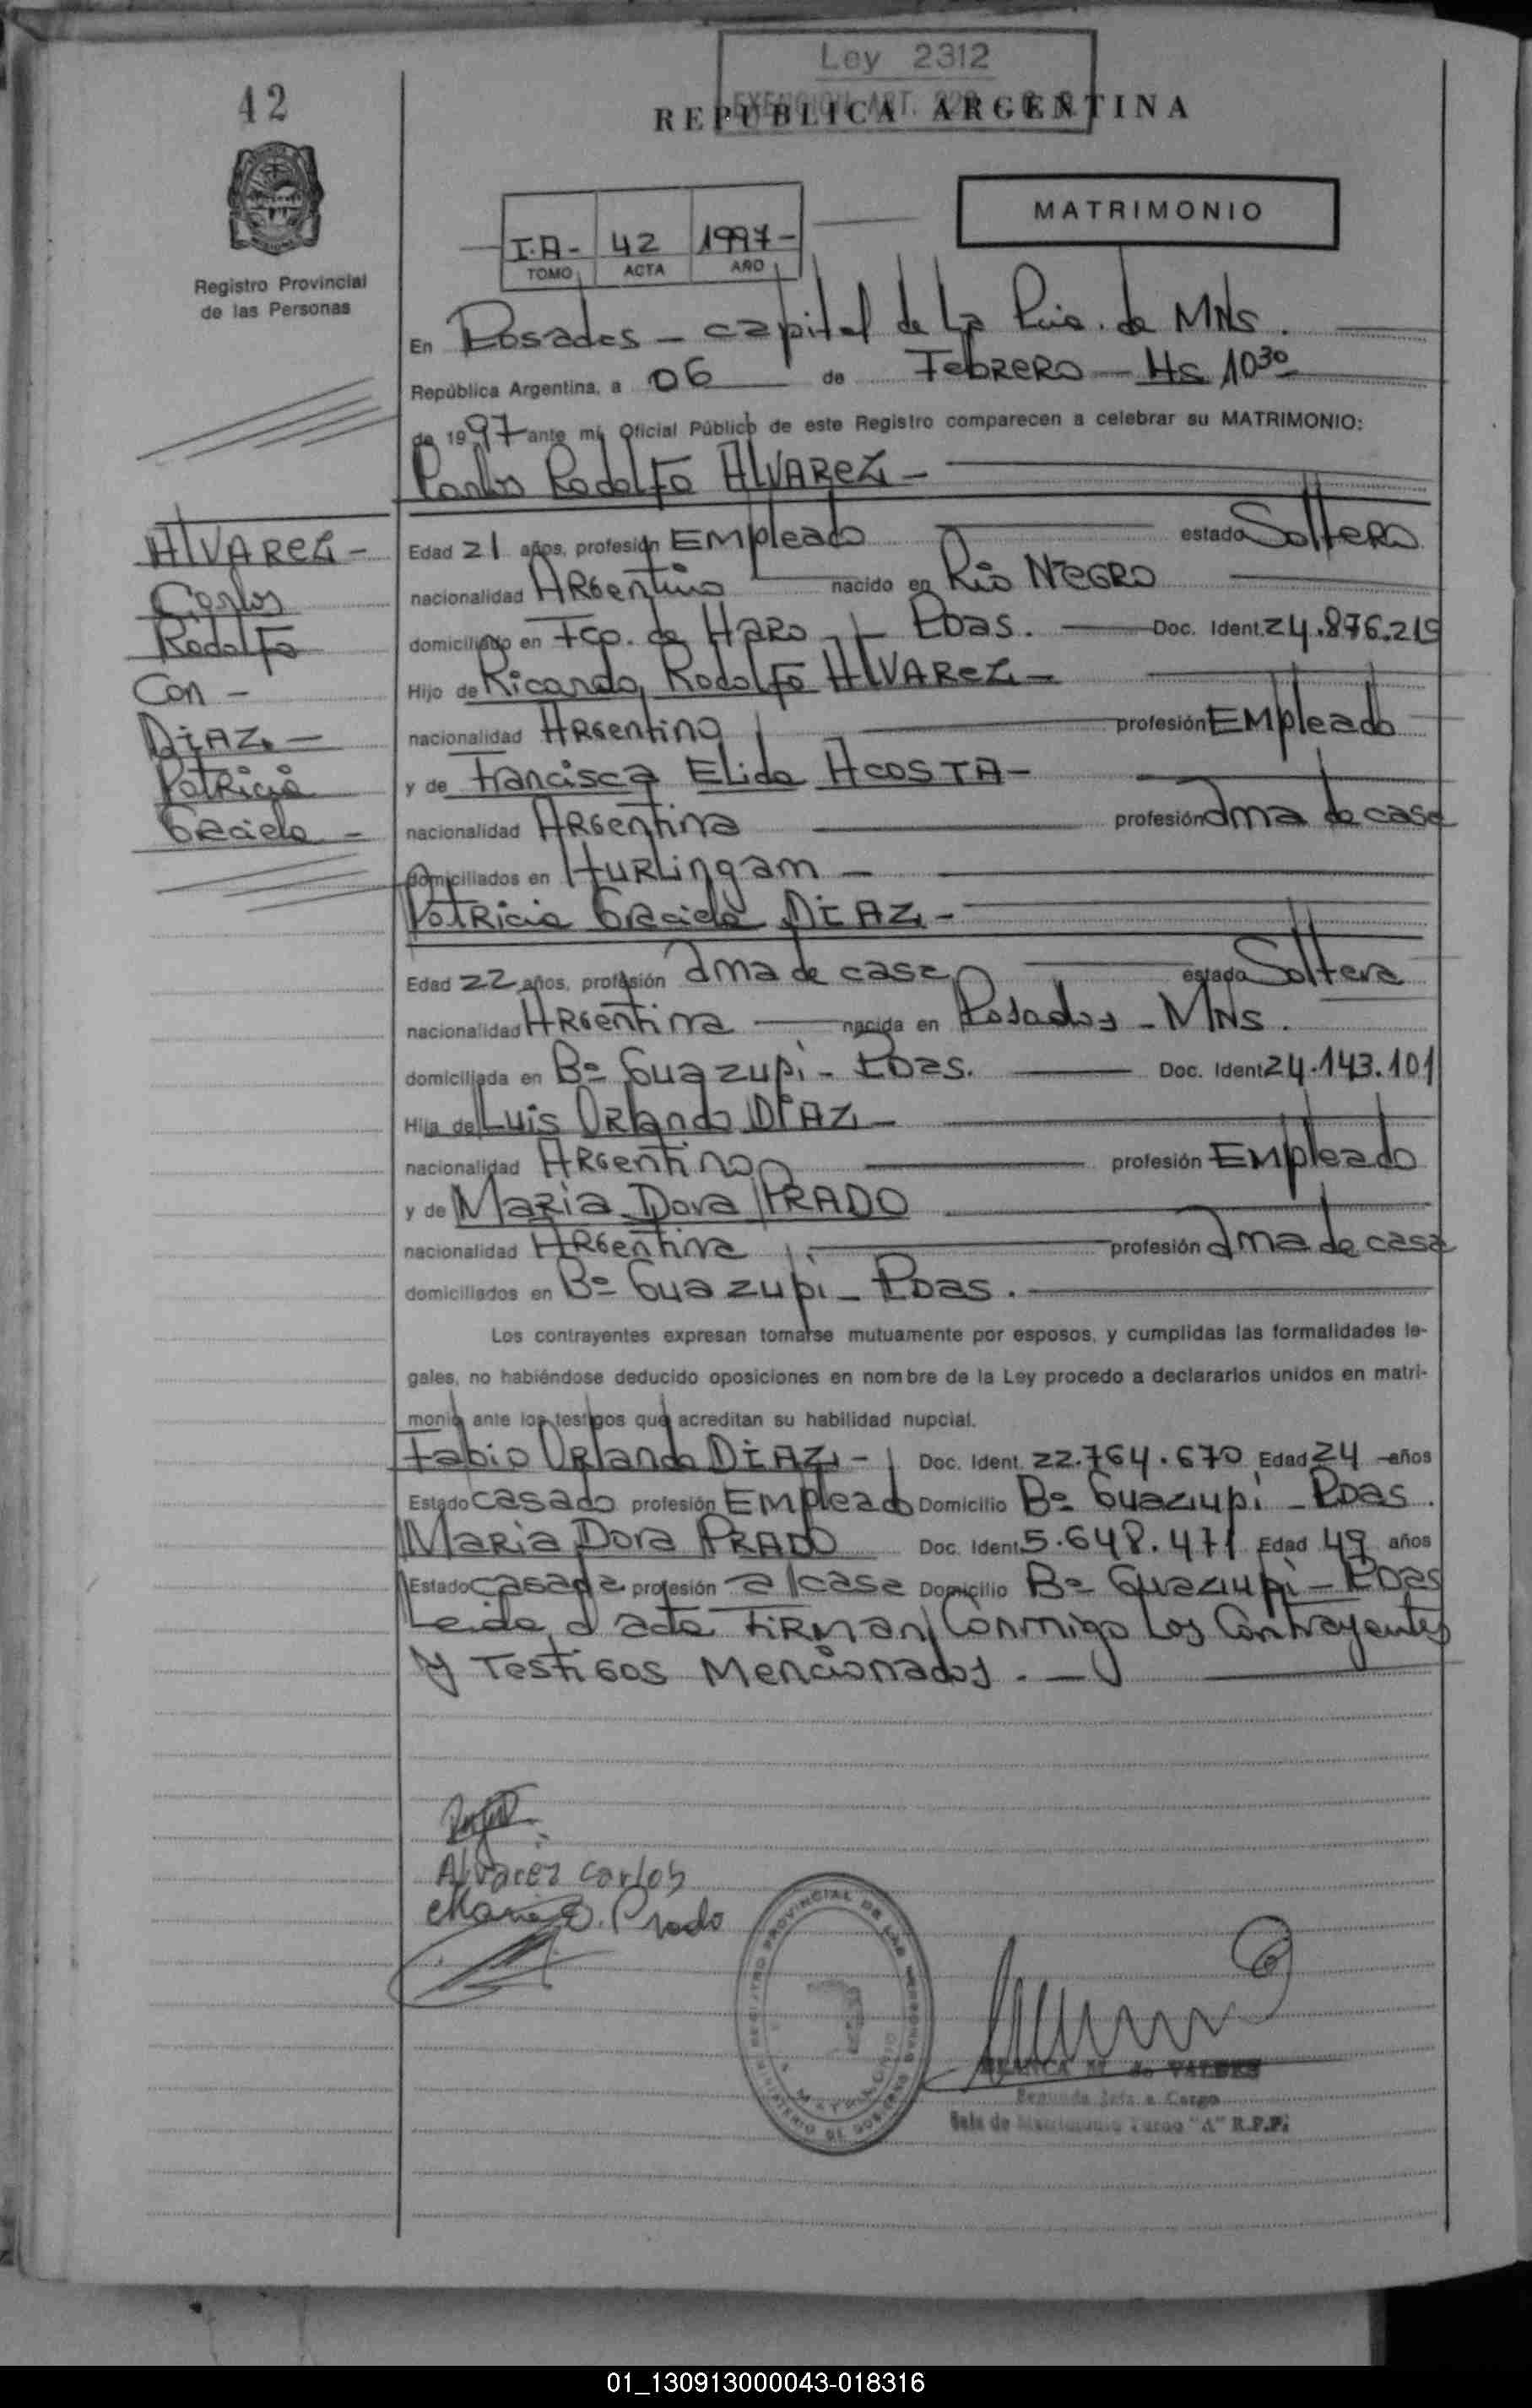 Ley 2312
EXENCION ART.
42
REPUBLICA ARGENTINA
MATRIMONIO
I.A- 42 1997-
TOMO ACTA AÑO
Registro Provincial
de las Personas
En Posadas - capital de La Pcia. de MNs.
República Argentina, a 06 de Febrero - Hs 10³⁰
de 1997 ante mí, Oficial Público de este Registro comparecen a celebrar su MATRIMONIO:
Carlos Rodolfo ALVAREZ -
ALVAREZ -
Carlos
Rodolfo
Con -
DIAZ -
Patricia
Graciela -
Edad 21 años, profesión Empleado estado Soltero
nacionalidad Argentino nacido en Rio Negro
domiciliado en Fco. de Haro - Pdas. Doc. Ident. 24.876.219
Hijo de Ricardo Rodolfo ALVAREZ -
nacionalidad Argentino profesión Empleado
y de Francisca Elida ACOSTA -
nacionalidad Argentina profesión ama de casa
domiciliados en Hurlingam -
Patricia Graciela DIAZ -
Edad 22 años, profesión ama de casa estado Soltera
nacionalidad Argentina nacida en Posadas - MNs.
domiciliada en B= Guazupi - Pdas. Doc. Ident 24.143.101
Hija de Luis Orlando DIAZ -
nacionalidad Argentino profesión Empleado
y de Maria Dora PRADO
nacionalidad Argentina profesión ama de casa
domiciliados en B= Guazupi - Pdas.
Los contrayentes expresan tomarse mutuamente por esposos, y cumplidas las formalidades le-
gales, no habiéndose deducido oposiciones en nombre de la Ley procedo a declararlos unidos en matri-
monio ante los testigos que acreditan su habilidad nupcial.
Fabio Orlando DIAZ - Doc. Ident. 22.764.670 Edad 24 - años
Estado casado profesión Empleado Domicilio B= Guazupi - Pdas.
Maria Dora PRADO Doc. Ident. 5.648.471 Edad 49 años
Estado casada profesión a/case Domicilio B= Guazupi - Pdas
Leida el acta firman conmigo Los Contrayentes
y Testigos Mencionados. -
Alvarez Carlos
Maria D. Prado
REGISTRO PROVINCIAL DE LAS PERSONAS
MINISTERIO DE GOBIERNO
BLANCA M. de VALDES
Segunda Jefa a Cargo
Sala de Matrimonio Turno "A" R.P.P.
01_130913000043-018316